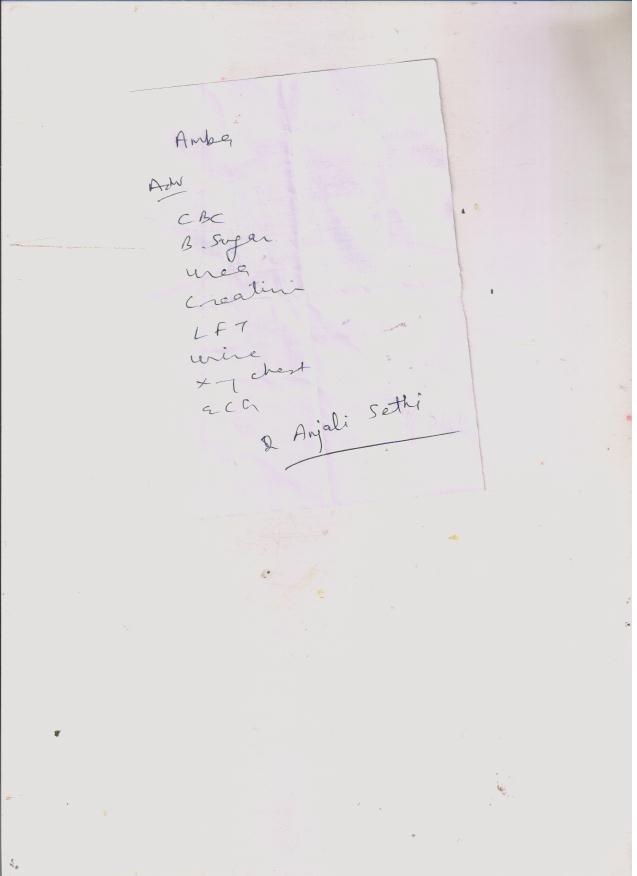 Amba
Adv
CBC
B. Sugar
urea
Creatini
LFT
urine
x-y chest
ECG
Dr Anjali Sethi